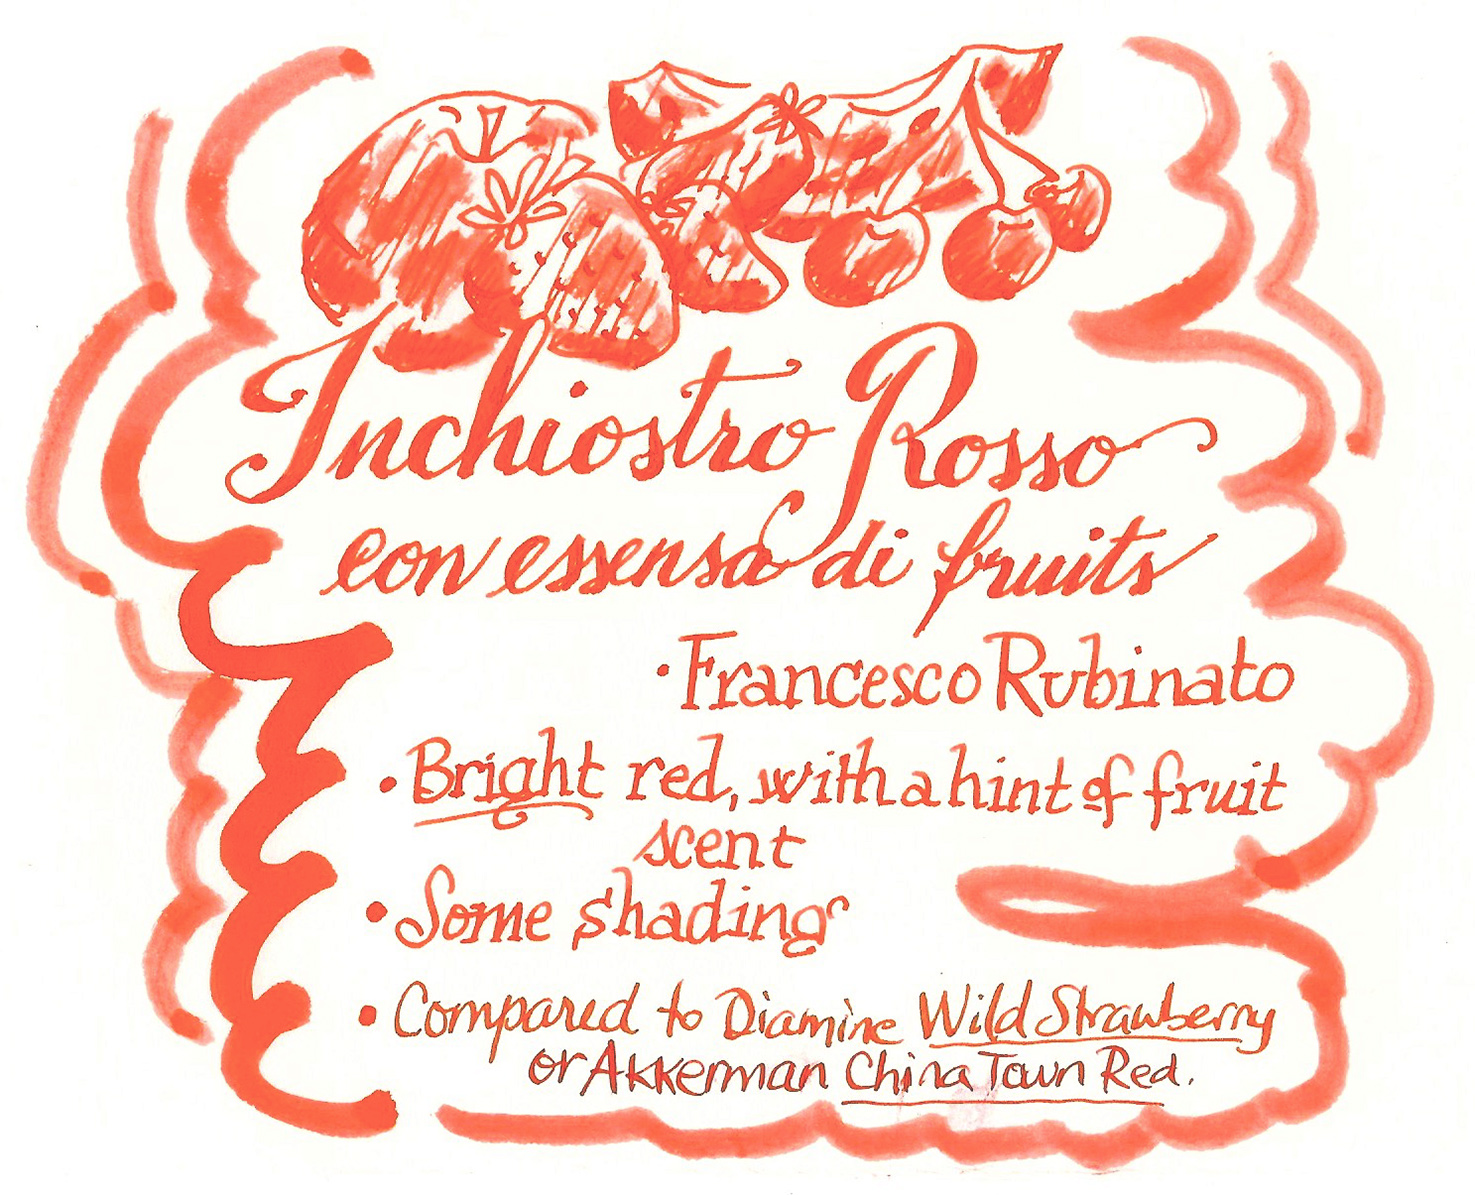 Inchiostro Rosso
con essensa di fruits
• Francesco Rubinato
• Bright red, with a hint of fruit
scent
• Some shading
• Compared to Diamine Wild Strawberry
or Akkerman China Town Red.